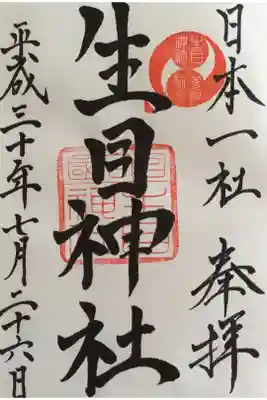 日本一社 奉拝
生目神社
平成三十年七月二十六日